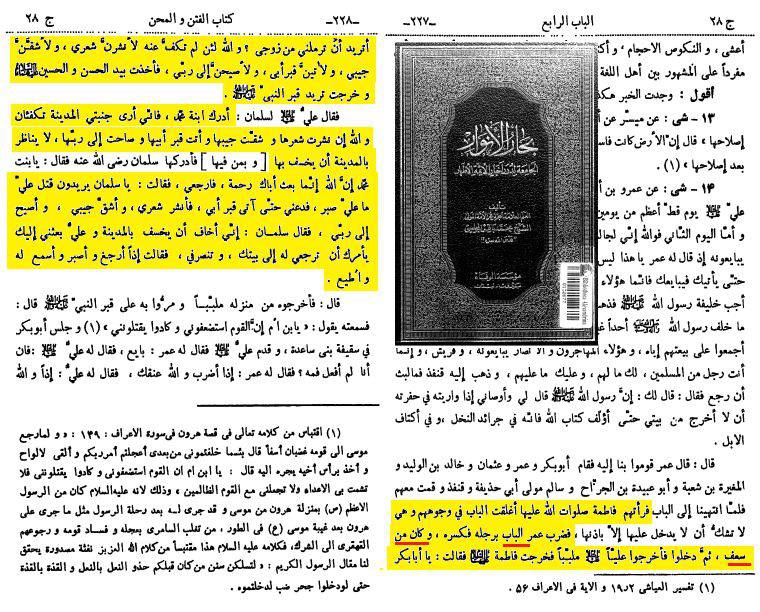 ج ٢٨ الباب الرابع -٢٢٧-
أعشى ، و النكوص الاحجام ، و
مفرداً على المشهور بين أهل اللغة
أقول : وجدت الخبر
١٣ - شى : عن ميسّر عن
إصلاحها » قال إنّ الأرض كانت
بعد إصلاحها » (١) .
١٤ - شى : عن عمرو بن
علي ﷵ يوم قط أعظم من يومين
و أمّا اليوم الثاني فوالله انّي لجالس
يبايعونه إذ قال له عمر يا هذا ليس
حتّى يأتيك فيبايعك فانّما هؤلاء
أجب خليفة رسول الله ﷺ
ما خلف رسول الله ﷺ أحداً
أجمعوا على بيعتهم إياه ، و هؤلاء المهاجرون و الأنصار يبايعونه ، و قريش ، و إنّما
أنت رجل من المسلمين ، لك ما لهم ، و عليك ما عليهم ، و ذهب إليه قنفذ فما لبث
أن رجع فقال : قال لك : إنّ رسول الله ﷺ قال لي و أوصاني إذا واريته في حفرته
أن لا أخرج من بيتي حتّى أؤلّف كتاب الله فانّه في جرائد النخل ، و في أكتاف
الابل .
قال : قال عمر قوموا بنا إليه فقام أبوبكر و عمر و عثمان و خالد بن الوليد و
المغيرة بن شعبة و أبو عبيدة بن الجرّاح و سالم مولى أبي حذيفة و قنفذ و قمت معهم
فلمّا انتهينا إلى الباب فرأتهم فاطمة صلوات الله عليها أغلقت الباب في وجوههم و هي
لا تشكّ أن لا يدخل عليها إلاّ باذنها ، فضرب عمر الباب برجله فكسره ، و كان من
سعف ، ثمّ دخلوا فأخرجوا عليّاً ملبّباً فخرجت فاطمة فقالت : يا أبابكر
(١) تفسير العياشى ١٩ر٢ و الاية فى الاعراف ٥٦ .
بحار الأنوار
الجامعة لدرر أخبار الأئمة الأطهار
تأليف
مؤسسة الوفاء
-٢٢٨- كتاب الفتن و المحن ج ٢٨
أتريد أن ترملني من زوجي ؟ و الله لئن لم تكفّ عنه لأنشرنّ شعري ، و لأشقّنّ
جيبي ، و لآتينّ قبر أبي ، و لأصيحنّ إلى ربّي ، فأخذت بيد الحسن و الحسين
و خرجت تريد قبر النبيّ ﷺ .
فقال عليّ لسلمان : أدرك ابنة محمّد ، فانّي أرى جنبتي المدينة تكفئان
و الله إن نشرت شعرها و شقّت جيبها و أتت قبر أبيها و صاحت إلى ربّها ، لا يناظر
بالمدينة أن يخسف بها [ و بمن فيها ] فأدركها سلمان رضى الله عنه فقال : يا بنت
محمّد إنّ الله إنّما بعث أباك رحمة ، فارجعي ، فقالت : يا سلمان يريدون قتل عليّ
ما عليّ صبر ، فدعني حتّى آتي قبر أبي ، فأنشر شعري ، و أشقّ جيبي ، و أصيح
إلى ربّي ، فقال سلمان : إنّي أخاف أن يخسف بالمدينة و عليّ بعثني إليك
يأمرك أن ترجعي له إلى بيتك ، و تنصرفي ، فقالت إذاً أرجع و أصبر و أسمع له
و أطيع .
قال : فأخرجوه من منزله ملبّباً و مرّوا به على قبر النبيّ ﷺ قال :
فسمعته يقول : « يا بن امّ إنّ القوم استضعفوني و كادوا يقتلونني » (١) و جلس أبوبكر
في سقيفة بني ساعدة ، و قدم عليّ فقال له عمر : بايع ، فقال له عليّ : فان
أنا لم أفعل فمه ؟ فقال له عمر : إذاً أضرب و الله عنقك ، فقال له عليّ : إذاً و الله
(١) اقتباس من كلامه تعالى فى قصة هرون فى سورة الاعراف : ١٤٩ : « و لما رجع
موسى الى قومه غضبان أسفاً قال بئسما خلفتمونى من بعدى أعجلتم أمر ربكم و ألقى الالواح
و أخذ برأس أخيه يجره اليه قال يا ابن ام ان القوم استضعفونى و كادوا يقتلوننى فلا
تشمت بى الاعداء و لا تجعلنى مع القوم الظالمين » و ذلك لانه عليه السلام كان من الرسول
الاعظم (ص) بمنزلة هرون من موسى و قد جرى لــه بعد رحلة الرسول مثل ما جرى على
هرون بعد غيبة موسى (ع) فى الطور ، من تغلب السامرى بعجله و فساد قومه و رجوعهم
القهقرى الى الشرك، فكلامه عليه السلام هذا مقتبساً من كلام الله العزيز نفثة مصدورة يحقق
لنا مقال الرسول الكريم : « لتسلكن سنن من كان قبلكم حذو النعل بالنعل و القذة بالقذة
حتى لو دخلوا جحر ضب لدخلتموه .